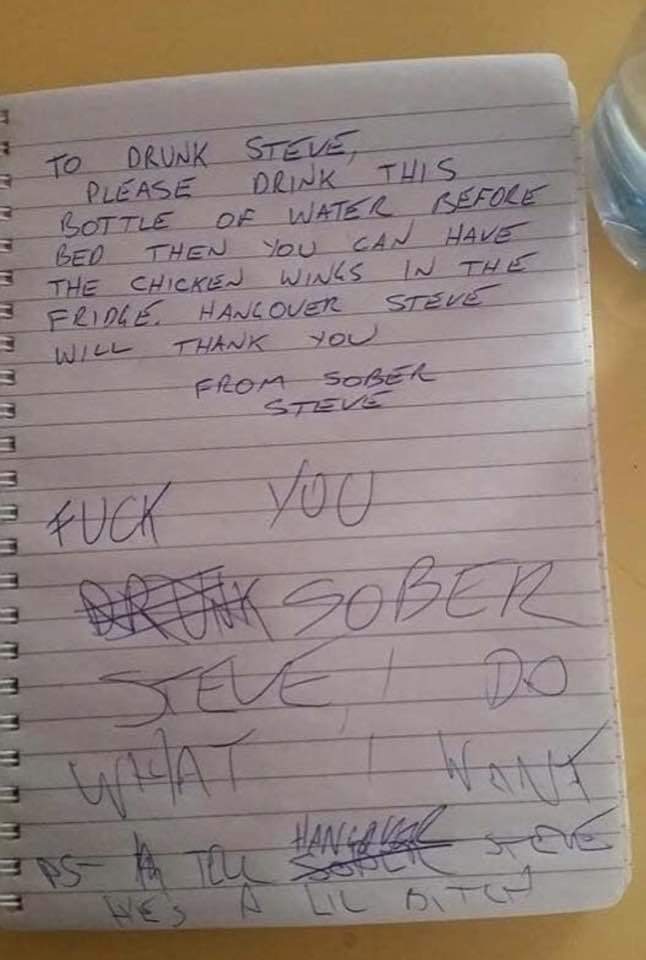 TO DRUNK STEVE,
PLEASE DRINK THIS
BOTTLE OF WATER BEFORE
BED THEN YOU CAN HAVE
THE CHICKEN WINGS IN THE
FRIDGE. HANGOVER STEVE
WILL THANK YOU
FROM SOBER
STEVE
FUCK YOU
DRUNK SOBER
STEVE, I DO
WHAT I WANT
HANGOVER
PS- TELL SOBER STEVE
HE'S A LIL BITCH